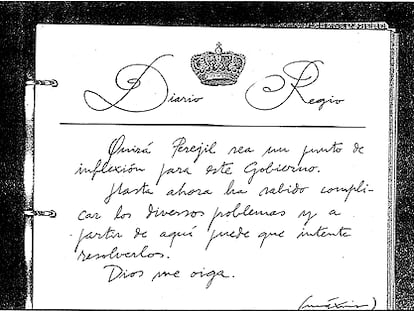 Diario Regio
Quizá Perejil sea un punto de
inflexión para este Gobierno.
Hasta ahora ha sabido compli-
car los diversos problemas y a
partir de aquí puede que intente
resolverlos.
Dios me oiga.
(máximo)